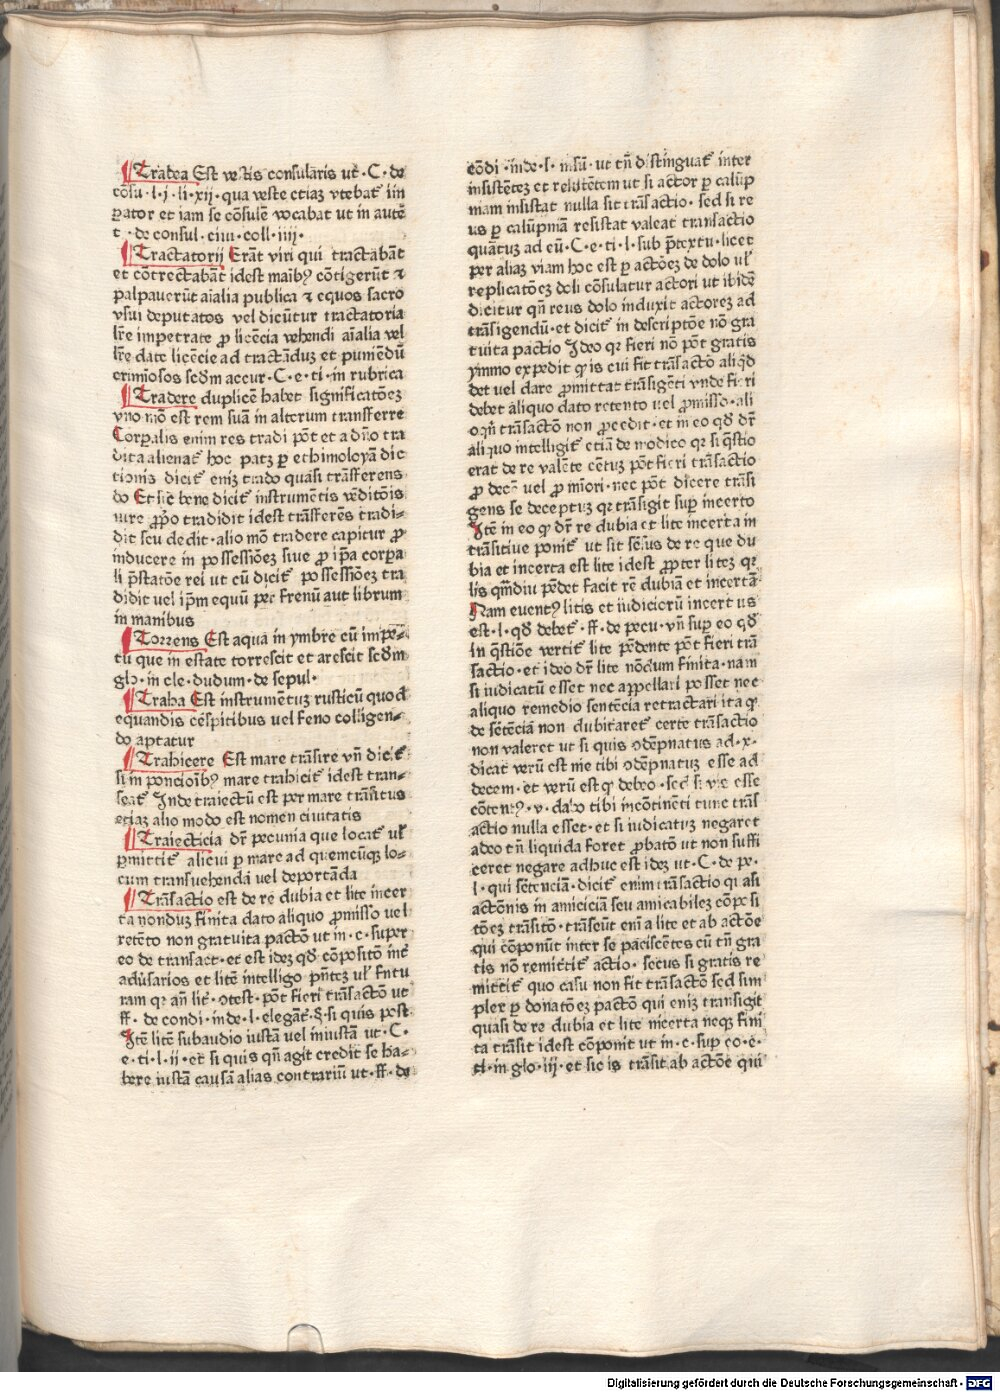 ¶Trabea Est vestis consularis ut͛·C·de
cōsu·l·i·li·xij·qua veste etiaȝ vtebat͛ im
perator et iam se cōsulē vocabat ut in autē
t·de consul·circa·coll·iiij·
¶Tractatorij Erāt viri qui tractabāt
et cōtrectabāt idest maībꝰ cōtigerūt ⁊
palpauerūt aīalia publica ⁊ equos sacro
vsui deputatos vel dicūtur tractatoria
lr̄e impetrate ꝓ licēcia vehendi aīalia vel
lr̄e date licēcie ad tractāduȝ et puniēdū
crimīosos scd̄m accur·C·e·ti·in rubrica
¶Tradere duplicē habet significatōeȝ
vno mō est rem suā in alterum transferre
Corꝑalis enim res tradi pōt et a dn̄o tra
dita alienat͛ hoc patȝ ꝑ ethimoloyā dic
tionis dicit͛ eniȝ trado quasi trāsferens
do Et sic bene dicit͛ instrumētis vēditōis
iure ꝓpo tradidit idest trāsferēs tradi-
dit seu dedit·alio mō tradere capitur ꝓ
inducere in possessiōeȝ siue ꝓ ip̄a corꝑa
li p̄statōe rei ut cū dicit͛ possessiōeȝ tra
didit vel ip̄m equū per frenū aut librum
in manibus
¶Torrens Est aqua in ymbre cū impe-
tu que in estate torrescit et arescit scd̄m
glo·in cle·dudum·de sepul·
¶Traha Est instrumētuȝ rusticū quod
equandis cēspitibus uel feno colligen-
do aptatur
¶Trahicere Est mare trāsire vn̄ dicit͛
si in poncioībꝰ mare trahicit͛ idest tran-
seat͛ Inde traiectū est per mare trāsitus
etiaȝ alio modo est nomen ciuitatis
¶Traiecticia dr̄ pecunia que locat͛ ul̄
ꝑmittit͛ alicui ꝑ mare ad quemcūqȝ lo-
cum transuehenda vel deportāda
¶Trāsactio est de re dubia et lite incer
ta nonduȝ finita dato aliquo ꝓmisso uel
retēto non gratuita pactō ut in·c·super
eo de transact·et est ideȝ qd̄ cōpositō int͛
adūsarios et litē intelligo pn̄teȝ ul̄ futu
ram qr an̄ lit͛·ɔtest·pōt fieri trāsactō ut
ff·de condi·inde·l·elegāt͛·§·si quis post
Itē litē subaudio iustā vel iniustā ut·C·
e·ti·l·ii·et si quis qn̄ agit credit se ha-
bere iustā causā alias contrariū ut·ff·de
cōdi·inde·l·in sū·ut tn̄ distinguat͛ inter
insistēteȝ et resistētem ut si actor ꝑ calūp
niam insistat nulla sit trāsactio·sed si re
us ꝑ calūpniā resistat valeat transactio
quātuȝ ad eū·C·e·ti·l·sub p̄textu·licet
per aliaȝ viam hoc est ꝑ actōeȝ de dolo ul̄
replicatōeȝ doli cōsulatur actori ut ibidē
dicitur qn̄ reus dolo induxit actoreȝ ad
trāsigendū·et dicit͛ in descriptōe nō gra
tuita pactio Ideo qr fieri nō pōt gratis
ymmo expedit ꝙ is cui fit trāsactō aliqd̄
det uel dare ꝓmittat trāsigēti vnde fieri
debet aliquo dato retento uel ꝓmisso·ali
oqn̄ trāsactō non ꝓcedit·et in eo qd̄ dr̄
aliquo intelligit͛ etiā de modico qr si q̄stio
erat de re valēte cētuȝ pōt fieri trāsactio
ꝓ decē uel ꝓ miori·nec pōt dicere trāsi
gens se deceptuȝ qr trāsigit suꝑ incerto
Itē in eo ꝙ dr̄ re dubia et lite incerta in
trāsitiue ponit͛ ut sit sēsus de re que du
bia et incerta est lite idest ꝓpter liteȝ qr
lis qm̄diu pēdet facit rē dubiā et incertā
Nam euentꝰ litis et iudiciorū incertus
est·l·qd̄ debet͛·ff·de pecu·vn̄ suꝑ eo qd̄
in q̄stiōe vertit͛ lite pēdente pōt fieri trā
sactio·et ideo dr̄ lite nōdum finita·nam
si iudicatū esset nec appellari posset nec
aliquo remedio sentēcia retractari ita ꝙ
de sētēciā non dubitaret͛ certe trāsactio
non valeret ut si quis ɔdēpnatus ad·x·
dicat verū est me tibi ɔdēpnatuȝ esse ad
decem·et verū est ꝙ debeo·sed si vis esse
cōtentꝰ·v·dabo tibi incōtinēti tunc trās
actio nulla esset·et si iudicatuȝ negaret
adeo tn̄ liquida foret ꝓbatō ut non suffi
ceret negare adhuc est ideȝ ut·C·de pe·
l·qui sētenciā·dicit͛ enim trāsactio quasi
actōnis in amiciciā seu amicabileȝ cōposi
tōeȝ trāsitō·trāseūt em̄ a lite et ab actōe
qui cōponūt inter se paciscētes cū tn̄ gra
tis nō remittit͛ actio·secus si gratis re
mittit͛ quo casu non fit trāsactō sed sim
plex ꝑ donatōeȝ pactō qui eniȝ transigit
quasi de re dubia et lite incerta neqȝ fini
ta trāsit idest cōponit ut in·c·suꝑ eo·e·
ti·in glo·iij·et sic is trāsit ab actōe qui
Digitalisierung gefördert durch die Deutsche Forschungsgemeinschaft - DFG